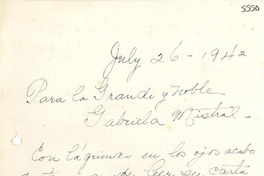 5550
July 26-1942
Para la Grande y noble
Gabriela Mistral-
Con lágrimas en los ojos acabo
de leer su carta